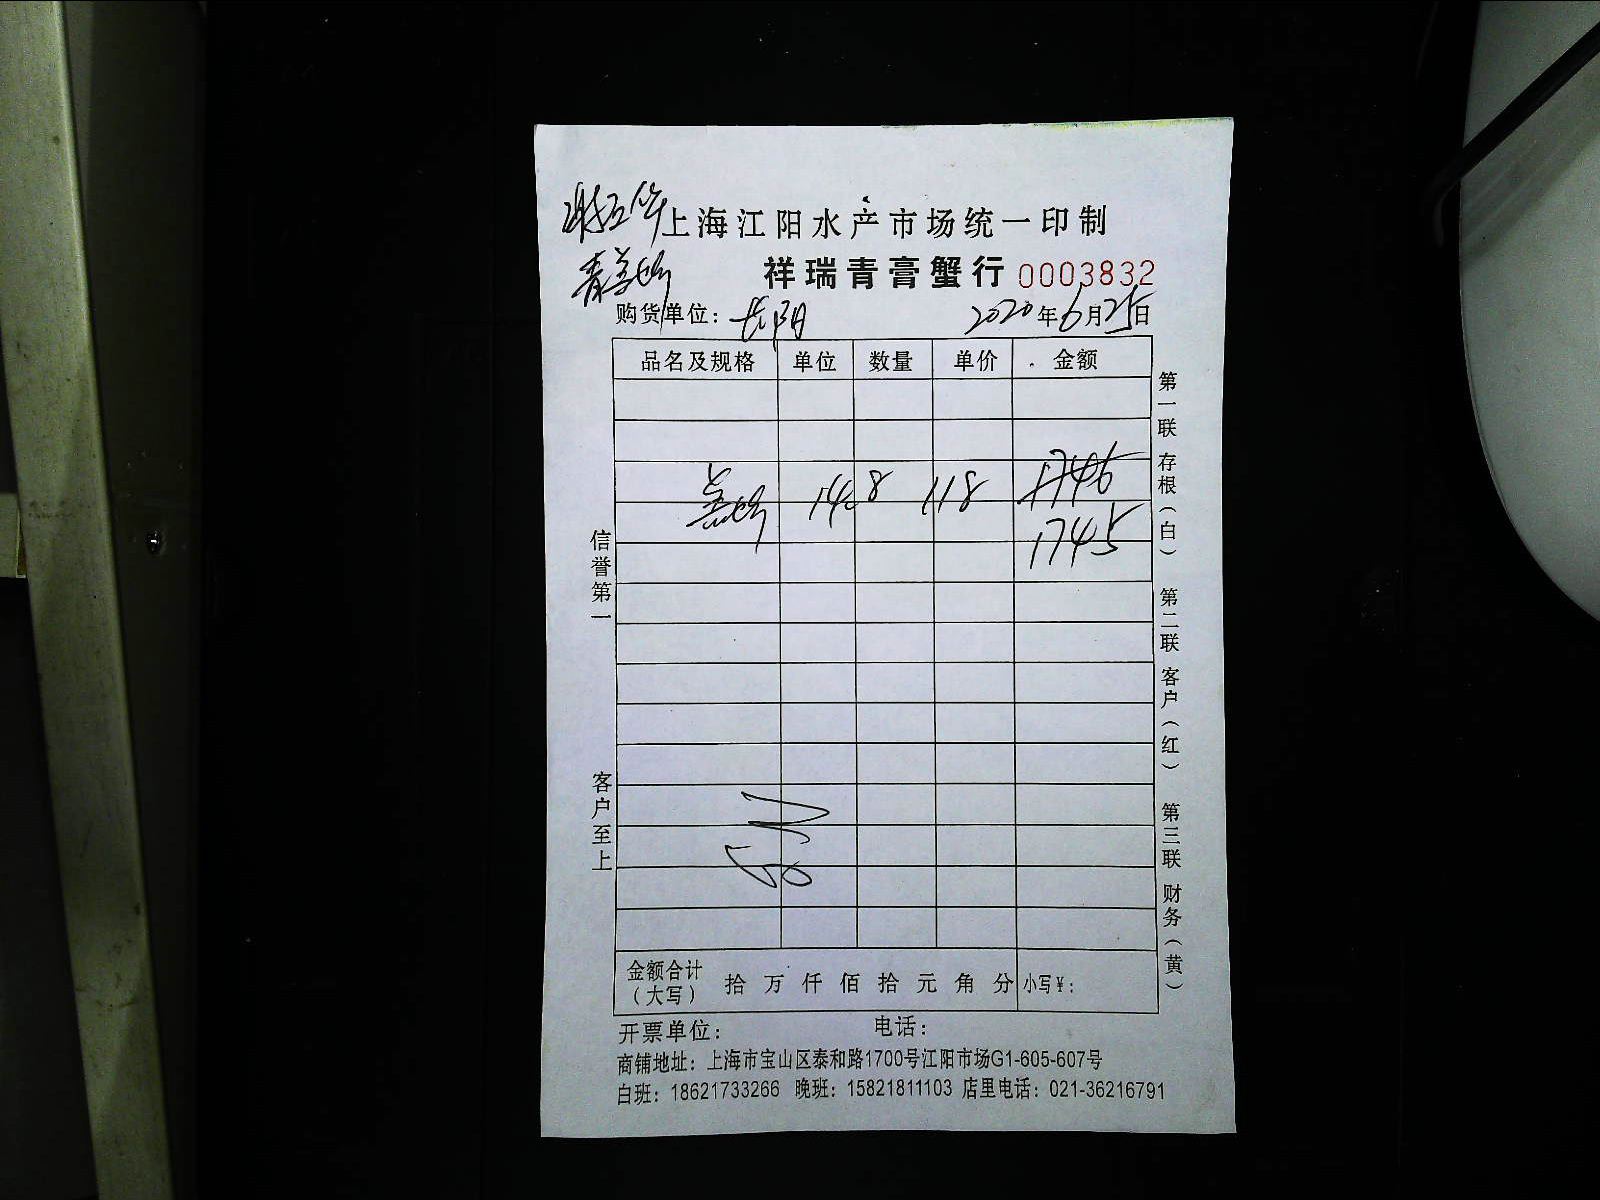 上海江阳水产市场统一印制
祥瑞青膏蟹行 0003832
购货单位: 长阳 2020年6月25日
品名及规格 单位 数量 单价 金额
14.8 118 1746
1745
信誉第一
客户至上
第一联 存根(白) 第二联 客户(红) 第三联 财务(黄)
金额合计(大写) 拾 万 仟 佰 拾 元 角 分 小写¥:
开票单位: 电话:
商铺地址: 上海市宝山区泰和路1700号江阳市场G1-605-607号
白班: 18621733266 晚班: 15821811103 店里电话: 021-36216791